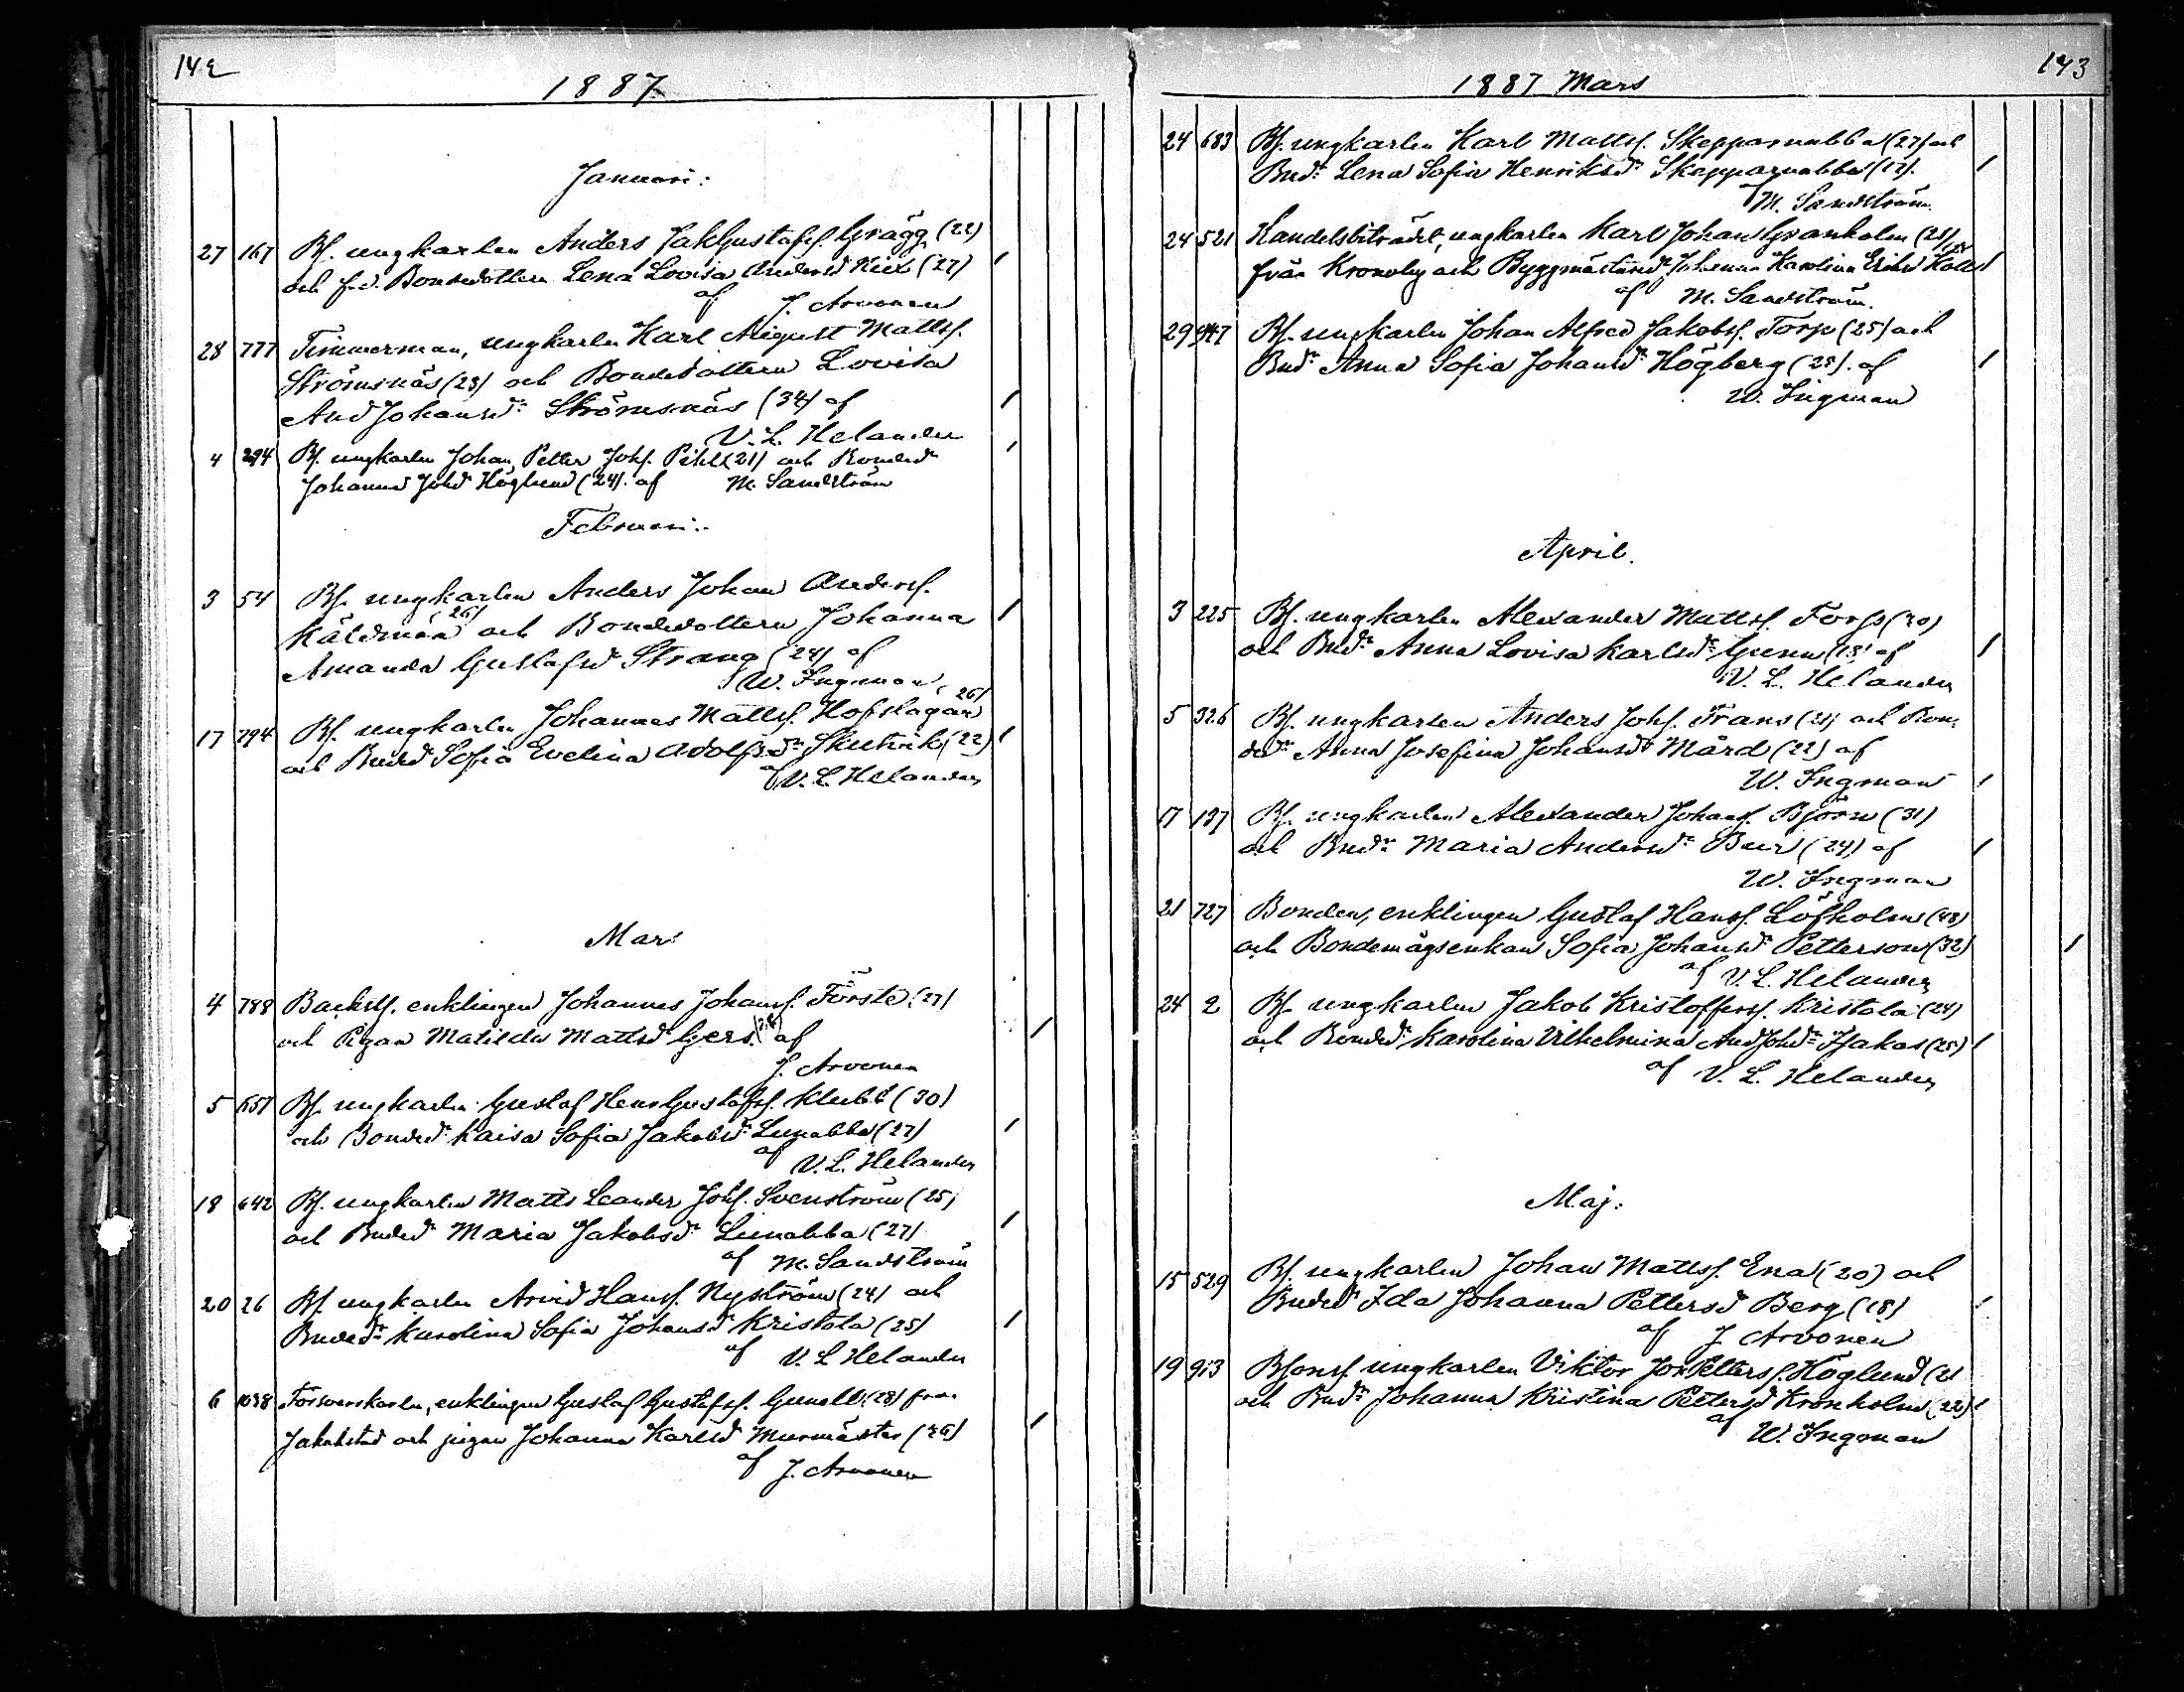 142
1887
Januari:
27 167 Bs. ungkarlen Anders JakGustafss. Grägg (22)
och f.d. Bondedottern Lena Lovisa Andersd (27)
af J. Arvonen
28 777 Timmerman, ungkarlen Karl August Mattss.
Strömsnäs (23) och Bondedottern Lovisa
And Johansdr Strömsnäs (34) af
V. L. Helander
4 294 Bs. ungkarlen Johan Petter Johs. Pihl (21) och Bonded
Johanna Johd Höglund (24). af M. Sandström
Februari:
3 54 Bs. ungkarlen Anders Johan Anderss.
Käldman 26) och Bondedottern Johanna
Amanda Gustafsd Strang (24) af
W. Ingman
17 794 Bs. ungkarlen Johannes Mattss. Hofslagare 26)
och Bnded Sofia Evelina Adolfsdr Skutvik (22)
af V. L. Helander
Mars
4 788 Backsts. enklingen Johannes Johanss. Förste (27)
och Pigan Matilda Mattsd Gers af
J. Arvonen
5 651 Bs. ungkarlen Gustaf HenrGustafss. Klubb (30)
och Bondedr Kaisa Sofia Jakobsdr Lunabba (27)
af V. L. Helander
18 642 Bs. ungkarlen Matts Leander Johs. Svenström (25)
och Bnded Maria Jakobsdr Lunabba (27)
af M. Sandström
20 26 Bs. ungkarlen Arvid Hanss. Nyström (24) och
Bndedr Karolina Sofia Johansdr Kristola (25)
af V. L Helander
6 1038 Försvarskarlen, enklingen Gustaf Gustafss. Gunell (28) från
Jakobstad och pigan Johanna Karlsd Murmäster (26)
af J. Arvonen
143
1887 Mars
24 683 Bs. ungkarlen Karl Mattss. Skepparnabba (27) och
Bndr Lena Sofia Henriksdr Skepparnabba (17).
af M. Sandström
24 521 Handelsbiträdet, ungkarlen Karl Johan Granholm (25)
från Kronoby och Byggmästared Johanna Karolina Eriksd
af M. Sandström.
29 947 Bs. ungkarlen Johan Alfred Jakobss. Torp (25) och
Bndr Anna Sofia Johansdr Högberg (25). af
W. Ingman
April.
3 225 Bs. ungkarlen Alexander Mattss. Forss (20)
och Bndr Anna Lovisa Karlsdr Gunn (18) af
V. L. Helander
5 326 Bs. ungkarlen Anders Johs. Frans (21) och Bon-
dedr Anna Josefina Johansdr Mård (22) af
W. Ingman
17 137 Bs. ungkarlen Alexander Johans. Björn (31)
och Bndr Maria Andersdr Beer (24) af
W. Ingman
21 727 Bonden, enklingen Gustaf Hanss. Löfholm (48)
och Bondemågsenkan Sofia Johansdr Petterson (32)
af V. L. Helander
24 2 Bs. ungkarlen Jakob Kristofferss. Kristola (24)
och Bondedr Karolina Vilhelmina AndJohdr Isakas (25)
af V. L. Helander
Maj:
15 529 Bs. ungkarlen Johan Mattss. Ena (20) och
Bndedr Ida Johanna Pettersd Berg (18)
af J Arvonen
19 913 Bsons. ungkarlen Viktor Joh Petterss. Höglund (21
och Bndr Johanna Kristina Pettersd Kronholm (22)
af W. Ingman